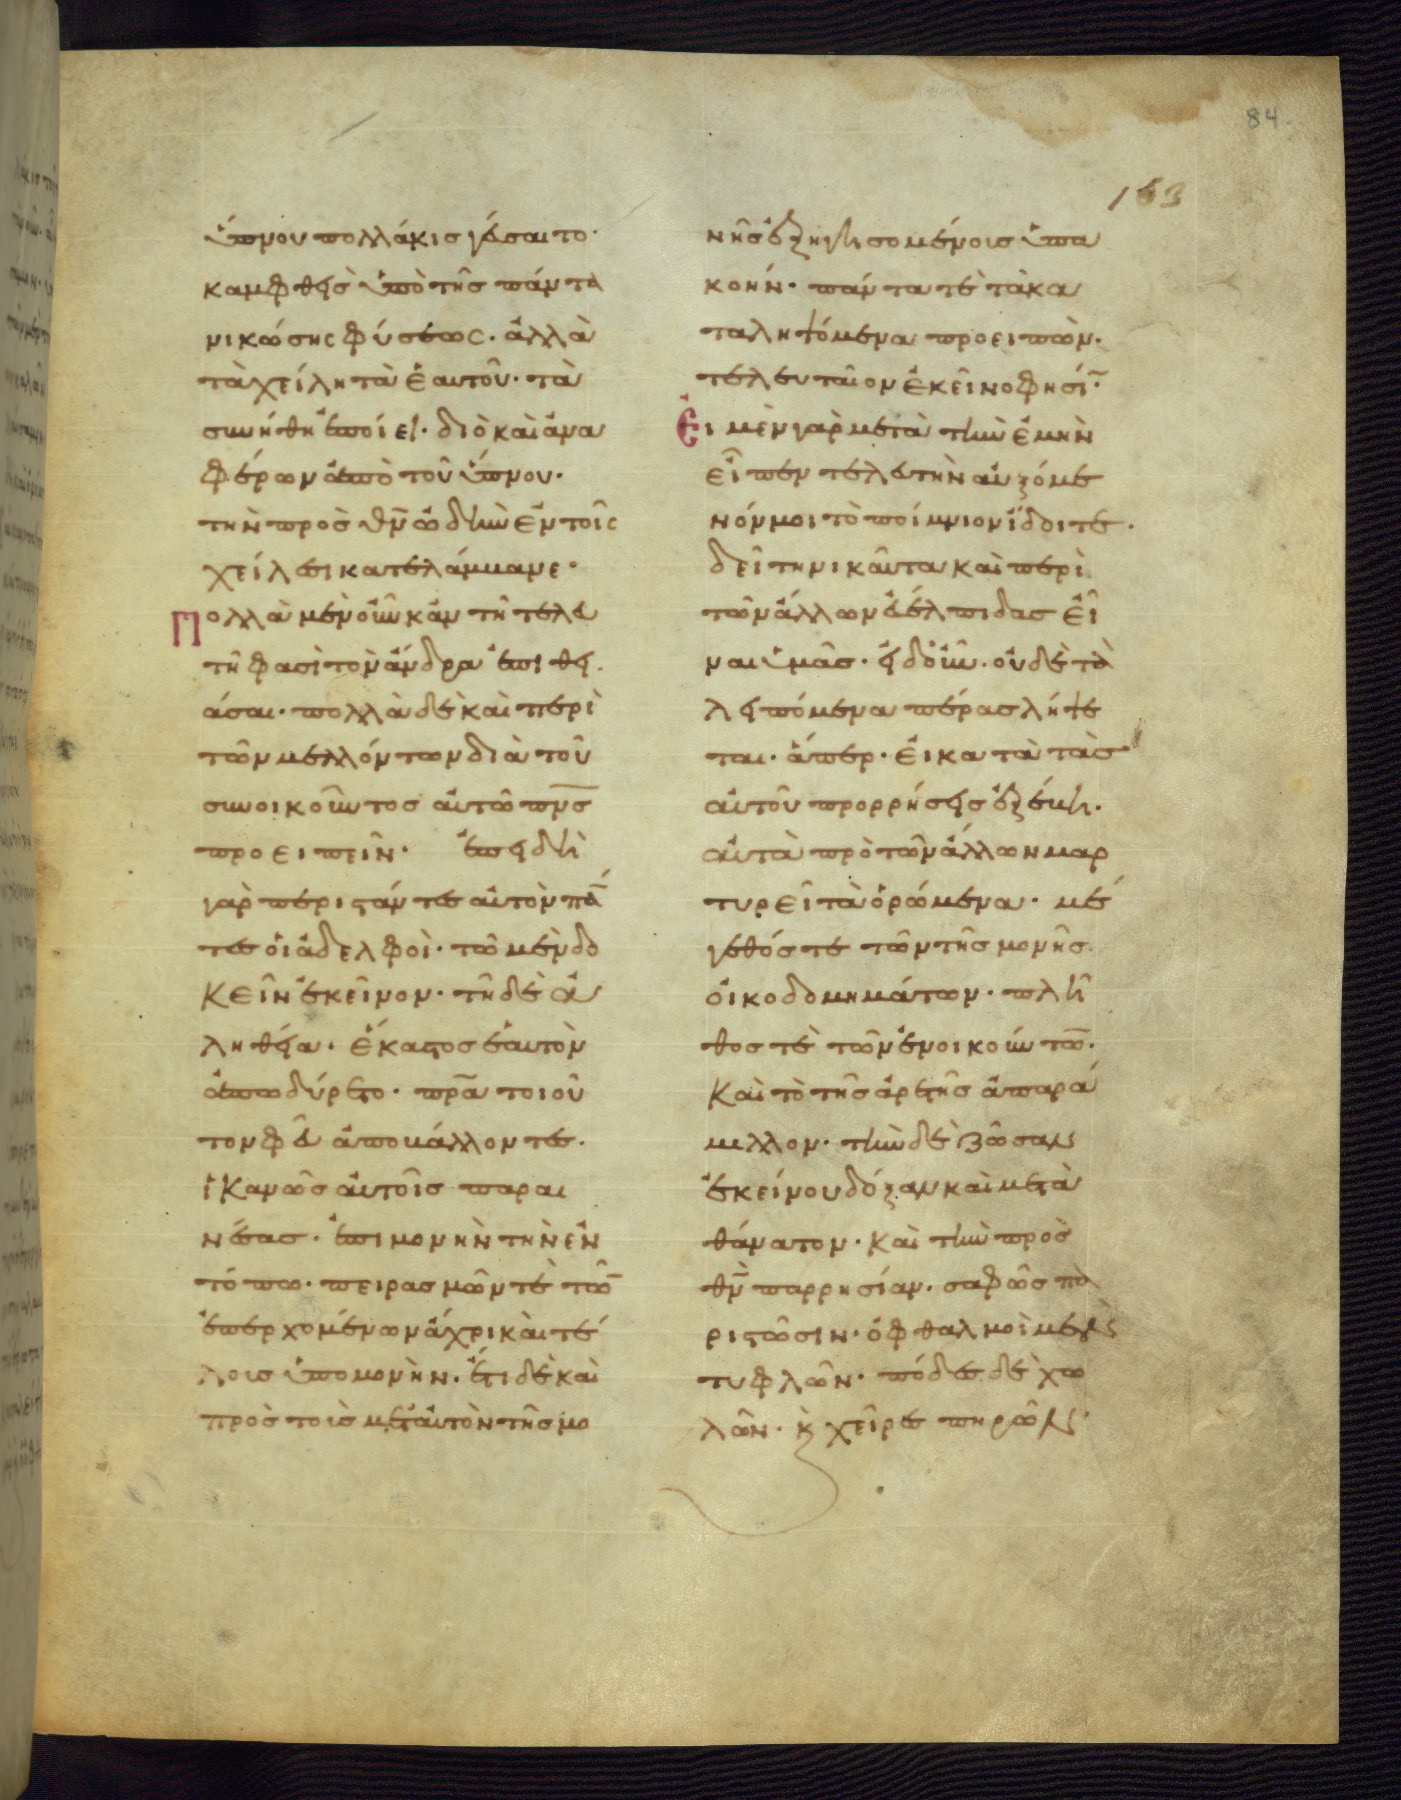 84
163
ὕπνου πολλάκις γεύσαιτο·
καμφθεὶς ὑπὸ τῆς πάντα
νικώσης φύσεως· ἀλλὰ
τὰ χείλη τὰ ἑαυτοῦ· τὰ
συνήθη ἐποίει· διὸ καὶ ἀνα
φέρων ἀπὸ τοῦ ὕπνου·
τὴν πρὸς θν ὠδὴν ἐν τοῖς
χείλεσι κατελάμβανε·
Πολλὰ μὲν οὖν κἀν τῆ τελευ
τῆ φασὶ τὸν ἄνδρα ἐπιθει
άσαι· πολλὰ δὲ καὶ περὶ
τῶν μελλόντων διὰ τοῦ
συνοικοῦντος αὐτῶ πνς
προειπεῖν· ἐπειδὴ
γὰρ περιστάντες αὐτὸν πά
τες οἱ ἀδελφοὶ· τῶ μὲν δο
κεῖν ἐκεῖνον· τῆ δὲ ἀ
ληθεία· ἕκαστος ἑαυτὸν
ἀπωδύρετο· πρα τοιοῦ
τον φεῦ ἀποβάλλοντες·
ἱκανῶς αὐτοῖς παραι
νέσας· ἐπιμονὴν τὴν ἐν
τόπω· πειρασμῶν τὲ τῶ
ἐπερχομένων ἄχρι καὶ τέ
λους ὑπομονὴν· ἔτι δὲ καὶ
πρὸς τοῖς μετ' αὐτὸν τῆς μο
νῆς ἐξηγησομένοις ὑπα
κοὴν· πάντα τὲ τὰ κα
ταληψόμενα προειπὼν·
τελευταῖον ἐκεῖνο φησί·
Εἰ μὲν γὰρ μετὰ τὴν ἐμὴν
εἶπεν τελευτὴν αὐξόμε
νόν μοι τὸ ποίμνιον ἴδοιτε·
δεῖ τηνικαῦτα καὶ περὶ
τῶν ἄλλων εὐέλπιδας εἶ
ναι ὑμᾶς· εἰ δ' οὖν· οὐδὲ τὰ
λειπόμενα πέρας λήψε
ται· ἅπερ· εἰ κατὰ τὰς
αὐτοῦ προρρήσεις ἐξέβη·
αὐτὰ πρὸ τῶν ἄλλων μαρ
τυρεῖ τὰ ὁρώμενα· μέ
γεθός τε τῶν τῆς μονῆς
οἰκοδομημάτων· πλῆ
θος τὲ τῶν ἐνοικούντω·
καὶ τὸ τῆς ἀρετῆς ἀπαρά
μιλλον· τὴν δὲ ζῶσαν
ἐκείνου δόξαν καὶ μετὰ
θάνατον· καὶ τὴν πρὸς
θν παρρησίαν· σαφῶς πα
ριστῶσιν· ὀφθαλμοὶ μὲν
τυφλῶν· πόδες δὲ χω
λῶν· κ χεῖρες πηρῶν